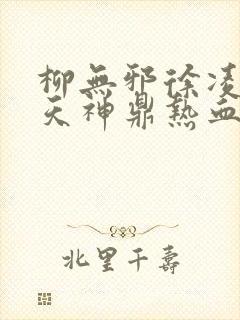 柳無邪徐凌
天神鼎熱血
北里千壽